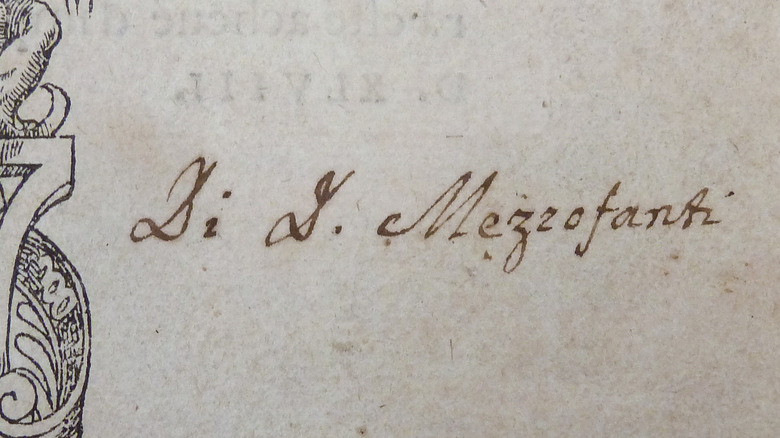 Di D. Mezzofanti